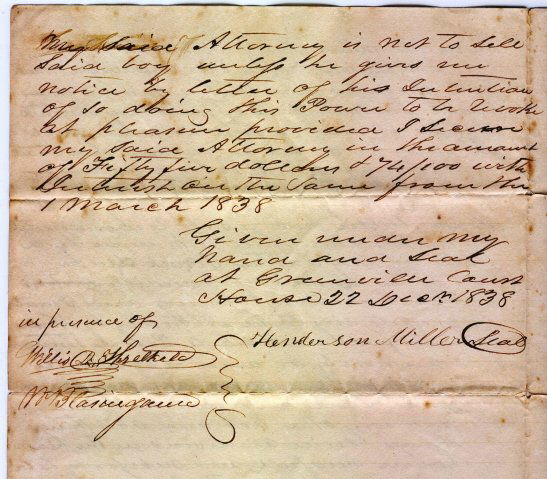 my said Attorney is not to sell
said boy unless he gives me
notice by letter of his Intention
of so doing this Power to be revoke
at pleasure provided I secure
my said Attorney in the amount
of Fifty five dollars & 74/100 with
Interest on the same from the
1 March 1838
Given under my
hand and Seal
at Greenville Court
House 22 Decr. 1838
in presence of
Henderson Miller Seal
Willis B.